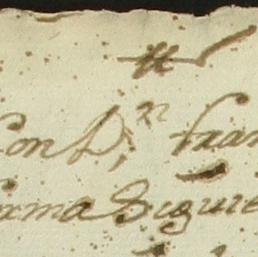 Con D.ⁿ fran
forma Siguie